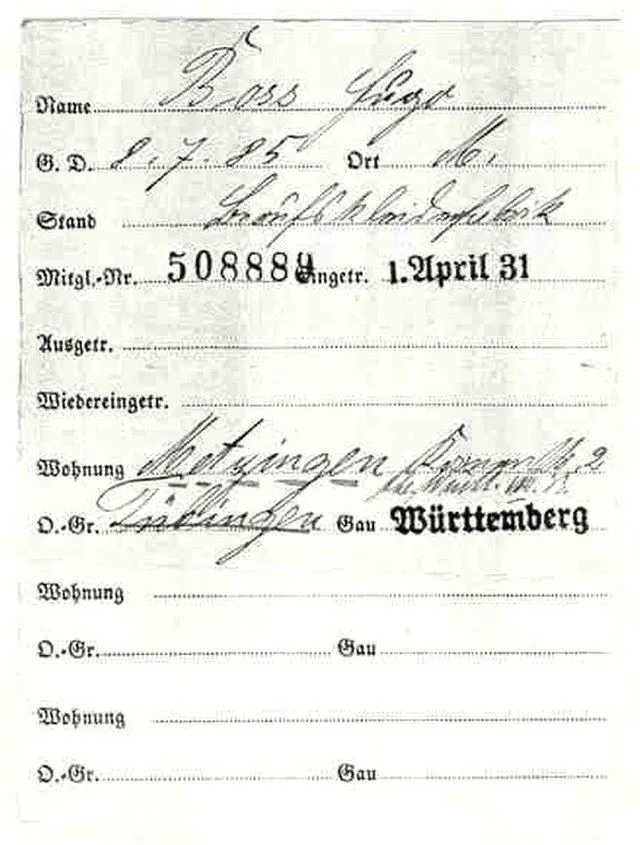 Name Boss Hugo
G. D. 8. 7. 85 Ort M.
Stand Berufskleiderfabrik
Mitgl.-Nr. 508889 Eingetr. 1. April 31
Ausgetr.
Wiedereingetr.
Wohnung Metzingen
O.-Gr. Tübingen Gau Württemberg
Wohnung
O.-Gr. Gau
Wohnung
O.-Gr. Gau